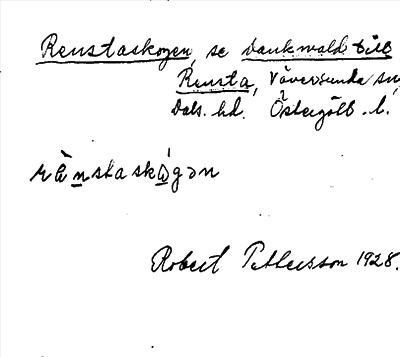 Renstaskogen, se Dankwalds till
Rensta, Väversunda sn,
Dals. hd. Östergötl. l.
rä̀nstaskógən
Robert Pettersson 1928.